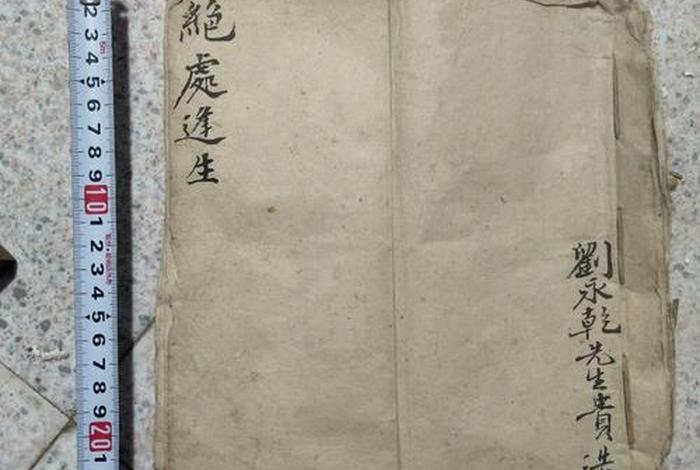 絕處逢生
劉永乾先生貴造
2
3
4
5
6
7
8
9
10
1
2
3
4
5
6
7
8
9
20
1